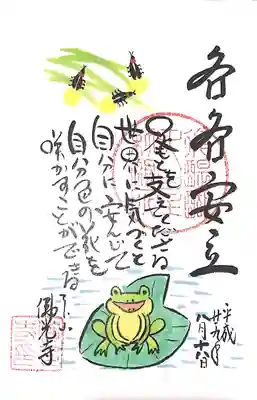 各各安立
平成
廿九年
八月十六日
足もとを支えてくださる
世界に気づくと
自分に安んじて
自分色の花を
咲かすことができるらしい
佛光寺